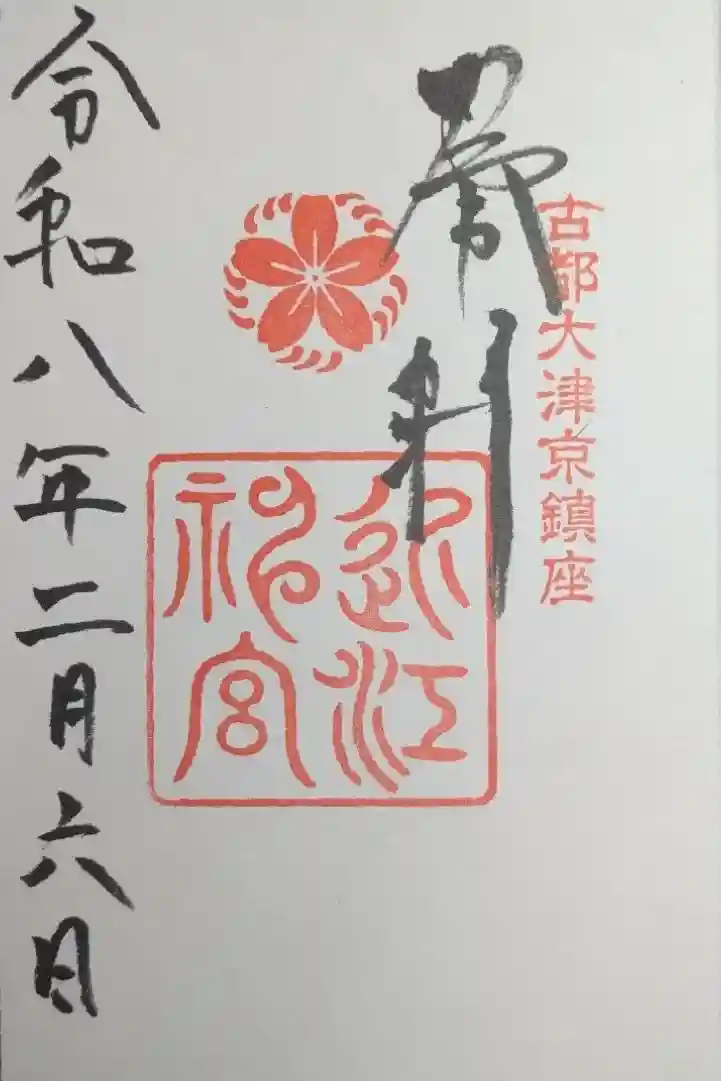 古都大津京鎮座
近江
神宮
令和八年二月六日